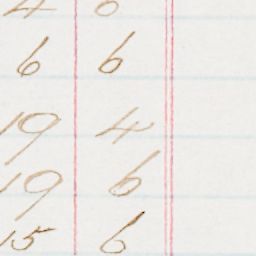 4 6
6 6
19 4
19 6
15 6